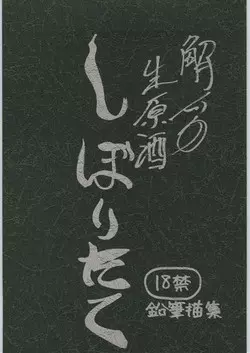 解禁
生原酒
しぼりたて
18禁
鉛筆描集